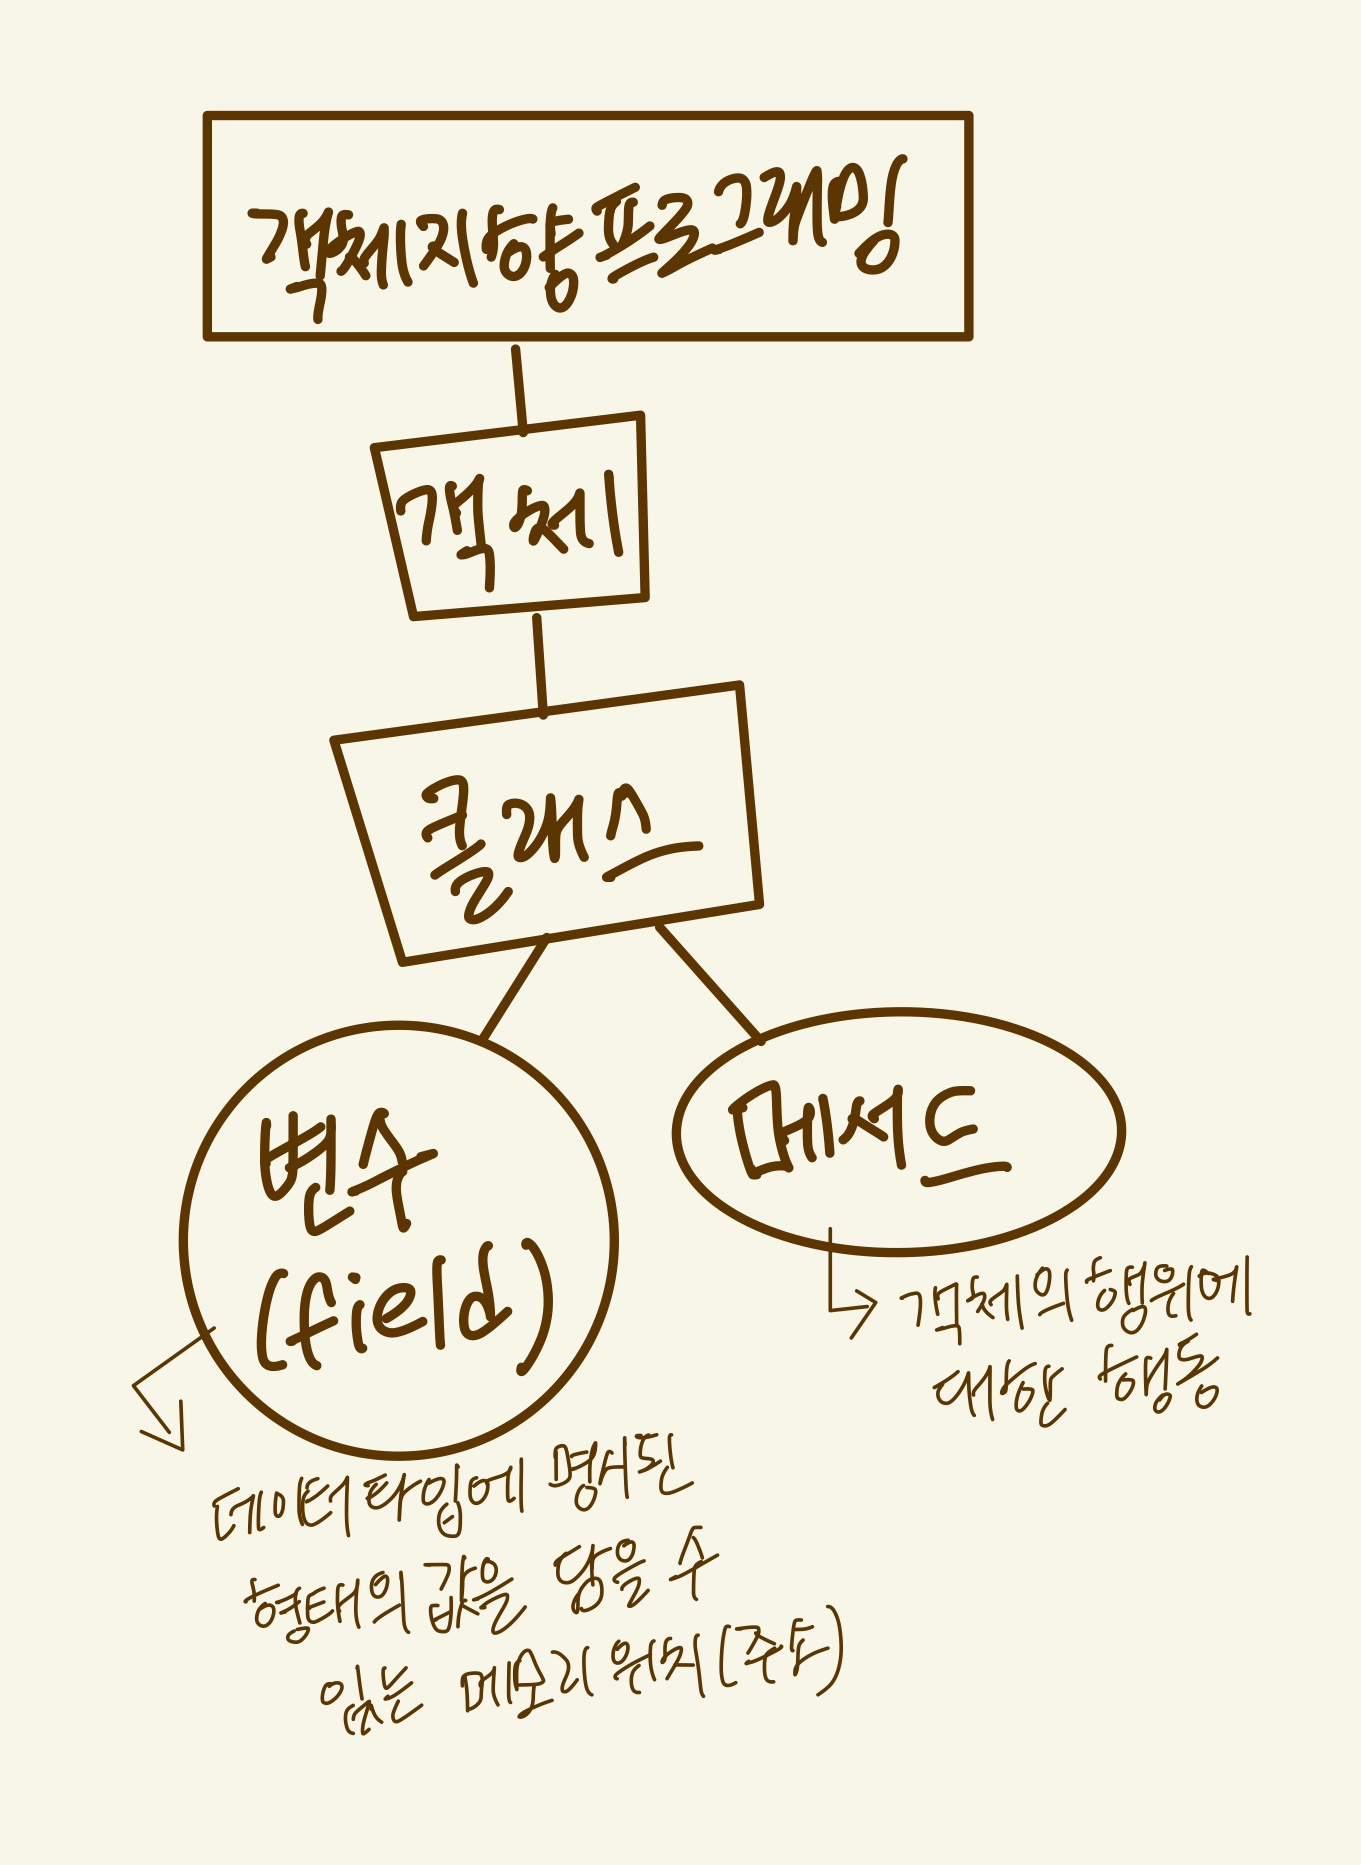 객체지향프로그래밍
객체
클래스
변수
(field)
메서드
객체의 행위에
대한 행동
데이터타입에 명시된
형태의 값을 담을 수
있는 메모리 위치(주소)